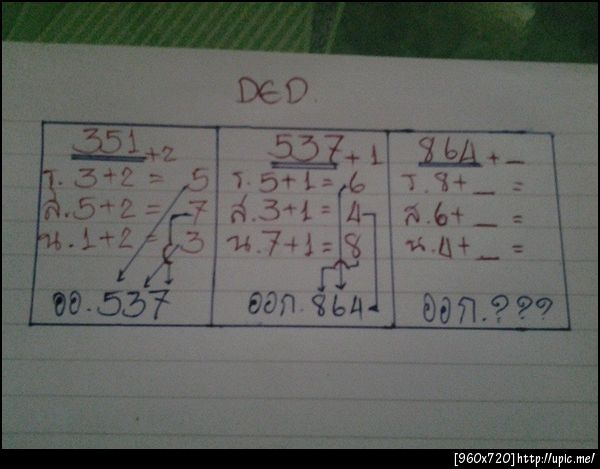 DED
351 +2
ร. 3+2 = 5
ส. 5+2 = 7
น. 1+2 = 3
ออ. 537
537 +1
ร. 5+1 = 6
ส. 3+1 = 4
น. 7+1 = 8
ออก. 864
864 + _
ร. 8+ _ =
ส. 6+ _ =
น. 4+ _ =
ออก. ???
[960x720]http://upic.me/